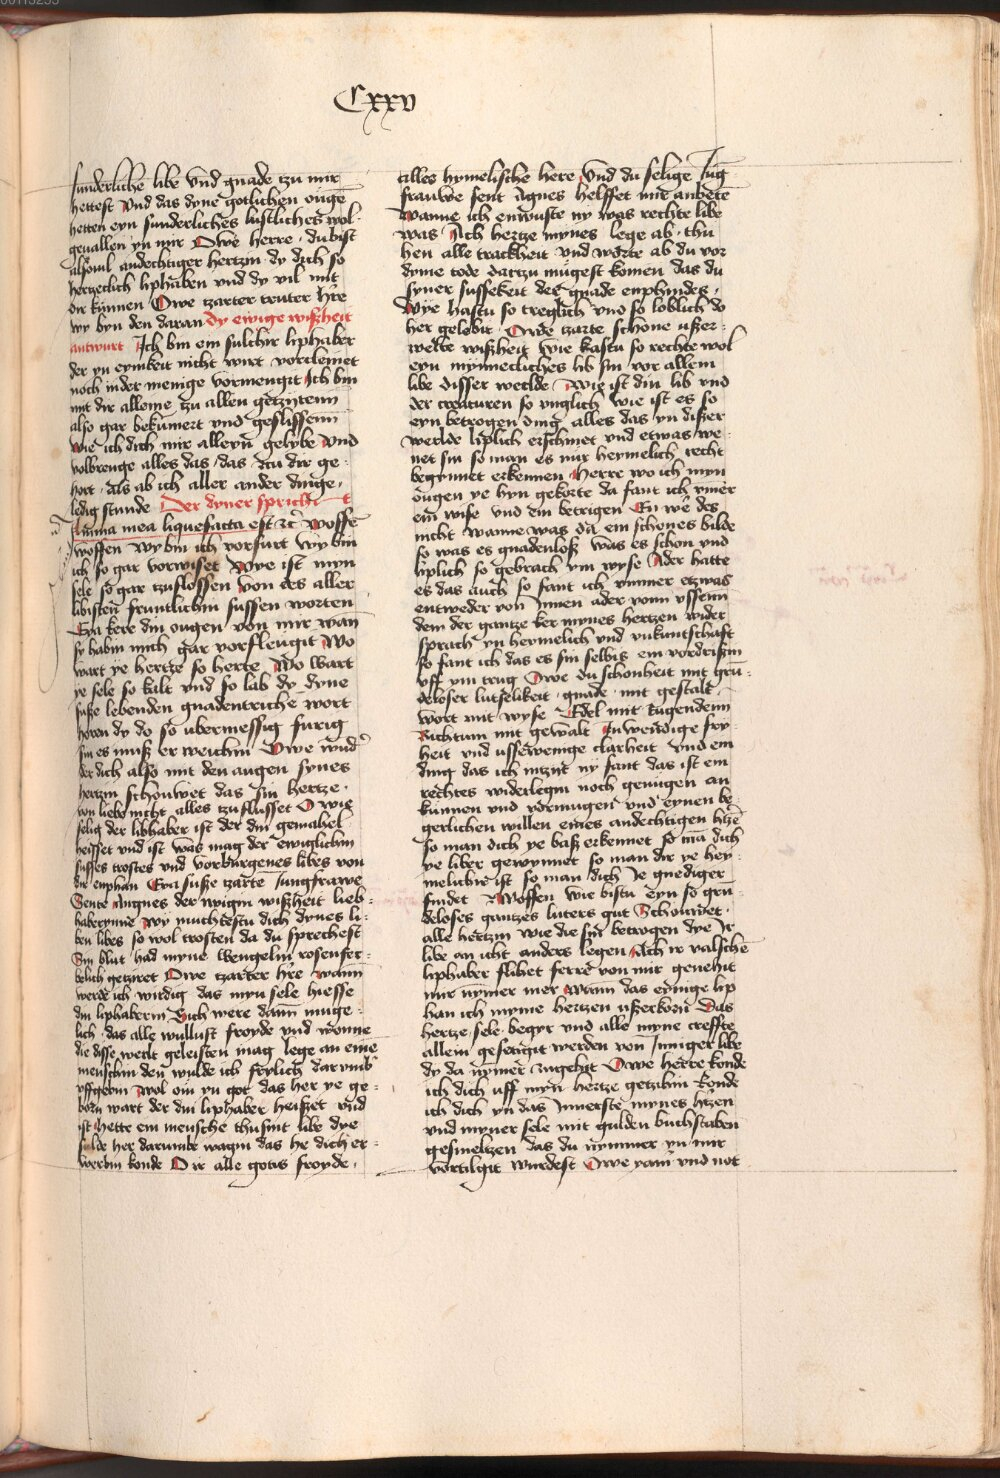 Cxxv
sunderliche libe vnd gnade tzu mir
hettest Vnd das dyne gotlichen ougē
hetten eyn sunderliches lustliches wol-
geuallen yn mir Owe herre du bist
also vil andechtiger hertzin dy dich so
hertzeclich liphaben vnd dy vil mit
dir kunnen Owe tzarter truter hr̄e
wy byn den daran dy ewige wißheit
antwurt Ich bin ein sulchir liphaber
der yn eynikeit nicht wirt vorcleinet
noch in der menige vormengit Ich bin
mit dir alleine tzu allen getzytenn
also gar bekumert vnd geflissenn
wie ich dich mir alleyn gelybe Vnd
volbrenge alles das das tzu dir ge-
hort als ab ich aller ander dinge
ledig stunde Der dyner spricht
Anima mea liquefacta est zc̄ Woffē
woffen wy bin ich vorfurt wy bin
ich so gar vorwiset Wye ist myn
sele so gar tzuflossen von des aller
libisten fruntlichin sussen worten
Eya kere din ougen von mir wan
sy habin mich gar vorfleugit Wo
wart ye hertze so herte Wo wart
ye sele so kalt vnd so lab dy dyne
suße lebenden gnadentriche wort
horen dy do so ubermessig furig
sin es muß er weichin Owe wud̄
der dich also mit den augen synes
hertzin schouwet das sin hertze
von liebe nicht alles tzuflusset O wie
selig der libhaber ist der din gemahel
heisset vnd ist was mag der ewiglichin
susses trostes vnd vorburgenes libes von
dir enphan Eya suße tzarte Jungfrawe
Sente Angnes der ewigin wißheit lieb-
haberynne wy muchtestu dich dynes li-
ben libes so wol trosten da du sprechest
Sin blut had myne wengelin rosenfer-
belich getziret Owe tzarter hr̄e wann
werde ich wirdig das myn sele hiesse
din liphaberin Sich were dann muge-
lich das alle wullust froyde vnd wonne
die disse werlt geleisten mag lege an eine
menschin den wulde ich frylich dar vmb
uffgebin Wol oin yn got das her ye ge-
born wart der din liphaber heißet vnd
ist Hette ein mensche thusint libe dye
solde her darumbe wagin das he dich er-
werbin konde O ir alle gotis froyde
alles hymelische here Vnd du selige Jūg
frauwe sent Agnes helffet mir anbete
Wanne ich enwuste ny was rechte libe
was Ach hertze mynes lege ab thu
hen alle trackheit vnd warte ab du vor
dyme tode dartzu mugest komen das du
syner sussekeit der gnade emphindes
Wye hastu so treglich vnd so loblich do
her gelebit Owe tzarte schone ußer-
welte wißheit Wie kastu so rechte wol
eyn mynnecliches lib sin vor allem
libe disser weelde Wie ist din lib vnd
der creaturen so vnglich wie ist es so
eyn betrogen ding alles das yn dißer
werlde liplich erschinet vnd etwas we-
net sin so man es nur heymelich recht
begynnet erkennen Herre wo ich myn
ougen ye hyn gekerte da fant ich ymer
ein wise vnd ein betrigen En we des
nicht wanne was da ein schones bilde
so was es gnadenloß was es schon vnd
liplich so gebrach ym wyse Ader hatte
es das auch so fant ich ymmer etzwas
entweder von Innen ader vonn ussenn
dem der gantze ker mynes hertzen wider
sprach yn heymelich vnd vnkuntschaft
so fant ich das es sin selbis ein vordrißin
uff ym trug Owe du schonheit mit grū-
deloser lutselikeit gnade mit gestalt
wort mit wyse Edel mit tugendenn
Richtum mit gewalt Inwendige fry-
heit vnd ussewenige clarheit vnd ein
ding das ich intznt ny fant das ist ein
rechtes widerlegin noch genugen an
kunnen vnd vormugen vnd eynen be-
gerlichen willen eines andechtigen htzē
so man dich ye baß erkennet so mā dich
ye liber gewynnet so man dir ye hey-
melicher ist so man dich Ie gnediger
findet Woffen wie bistu eyn so gru-
deloses gantzes luters gut Schouwet
alle hertzin wie die sin betrogen dye Ir
libe an icht anders legen Ach ir valschē
liphaber flihet ferre von mir genehit
mir nymer mer Wann das eynige lip
han ich myme hertzen ußerkorn Das
hertze sele begyr vnd alle myne creffte
allein gesetigit werden von Inniger libe
dy da nymer zugehit Owe herre konde
ich dich uff myn hertze getzihin Konde
ich dich yn das Innerste mynes htzen
vnd myner sele mit gulden buchstaben
gesmeltzen das du nymmer yn mir
vortilgit wurdest Owe yam̄ vnd not